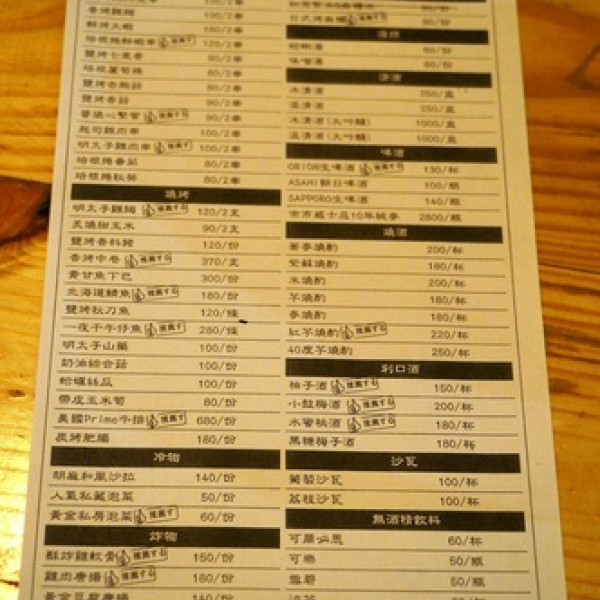 100/2串
香烤雞翅 100/2串
鮮烤大蝦 100/2串
培根捲鮮蝦串 推薦する 120/2串
鹽烤七里香 90/2串
培根蘆筍捲 80/2串
鹽烤杏鮑菇 80/2串
鹽烤香菇 90/2串
醬燒心繫管 推薦する 90/2串
起司雞肉串 100/2串
明太子雞肉串 推薦する 100/2串
培根捲番茄 80/2串
培根捲秋葵 80/2串
燒烤
明太子雞翅 推薦する 120/2支
炙燒甜玉米 90/2支
鹽烤香料豬 120/份
香烤中卷 推薦する 370/支
青甘魚下巴 300/份
北海道鯖魚 推薦する 180/份
鹽烤秋刀魚 120/條
一夜干午仔魚 推薦する 280/條
明太子山藥 100/份
奶油綜合菇 100/份
蛤蠣絲瓜 100/份
帶皮玉米筍 80/份
美國Prime牛排 推薦する 680/份
炭烤肥腸 180/份
冷物
胡麻和風沙拉 140/份
人氣私藏泡菜 50/份
黃金私房泡菜 推薦する 60/份
炸物
酥炸雞軟骨 推薦する 150/份
雞肉唐揚 推薦する 180/份
黃金豆腐唐揚 140/份
80/份
80/份
湯類
蛤蜊湯 60/份
味噌湯 60/份
清酒
冰清酒 250/壺
溫清酒 250/壺
冰清酒(大吟釀) 1000/壺
溫清酒(大吟釀) 1000/壺
啤酒
ORION生啤酒 推薦する 130/杯
ASAHI朝日啤酒 100/瓶
SAPPORO生啤酒 140/瓶
余市威士忌10年純麥 2800/瓶
燒酒
蕎麥燒酌 200/杯
紫蘇燒酌 180/杯
米燒酌 200/杯
芋燒酌 180/杯
麥燒酌 180/杯
紅芋燒酌 推薦する 220/杯
40度芋燒酌 250/杯
利口酒
柚子酒 推薦する 150/杯
小鼓梅酒 推薦する 200/杯
水蜜桃酒 推薦する 180/杯
黑糖梅子酒 180/杯
沙瓦
葡萄沙瓦 100/杯
荔枝沙瓦 100/杯
無酒精飲料
可爾必思 60/杯
可樂 50/瓶
雪碧 50/瓶